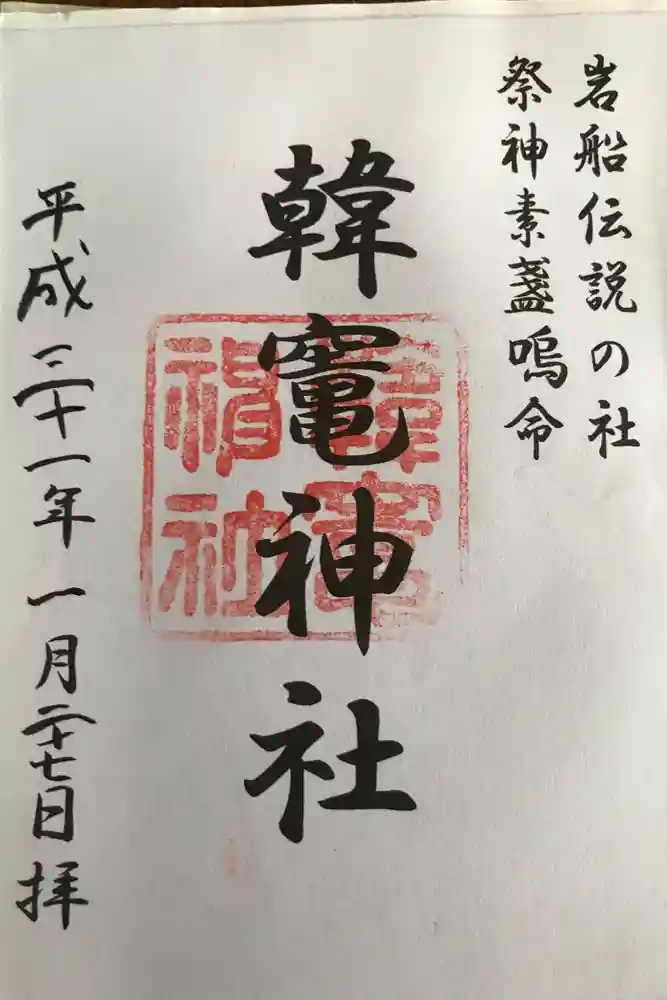 岩船伝説の社
祭神素盞嗚命
韓竈神社
韓竈神社
平成三十一年一月二十七日拝